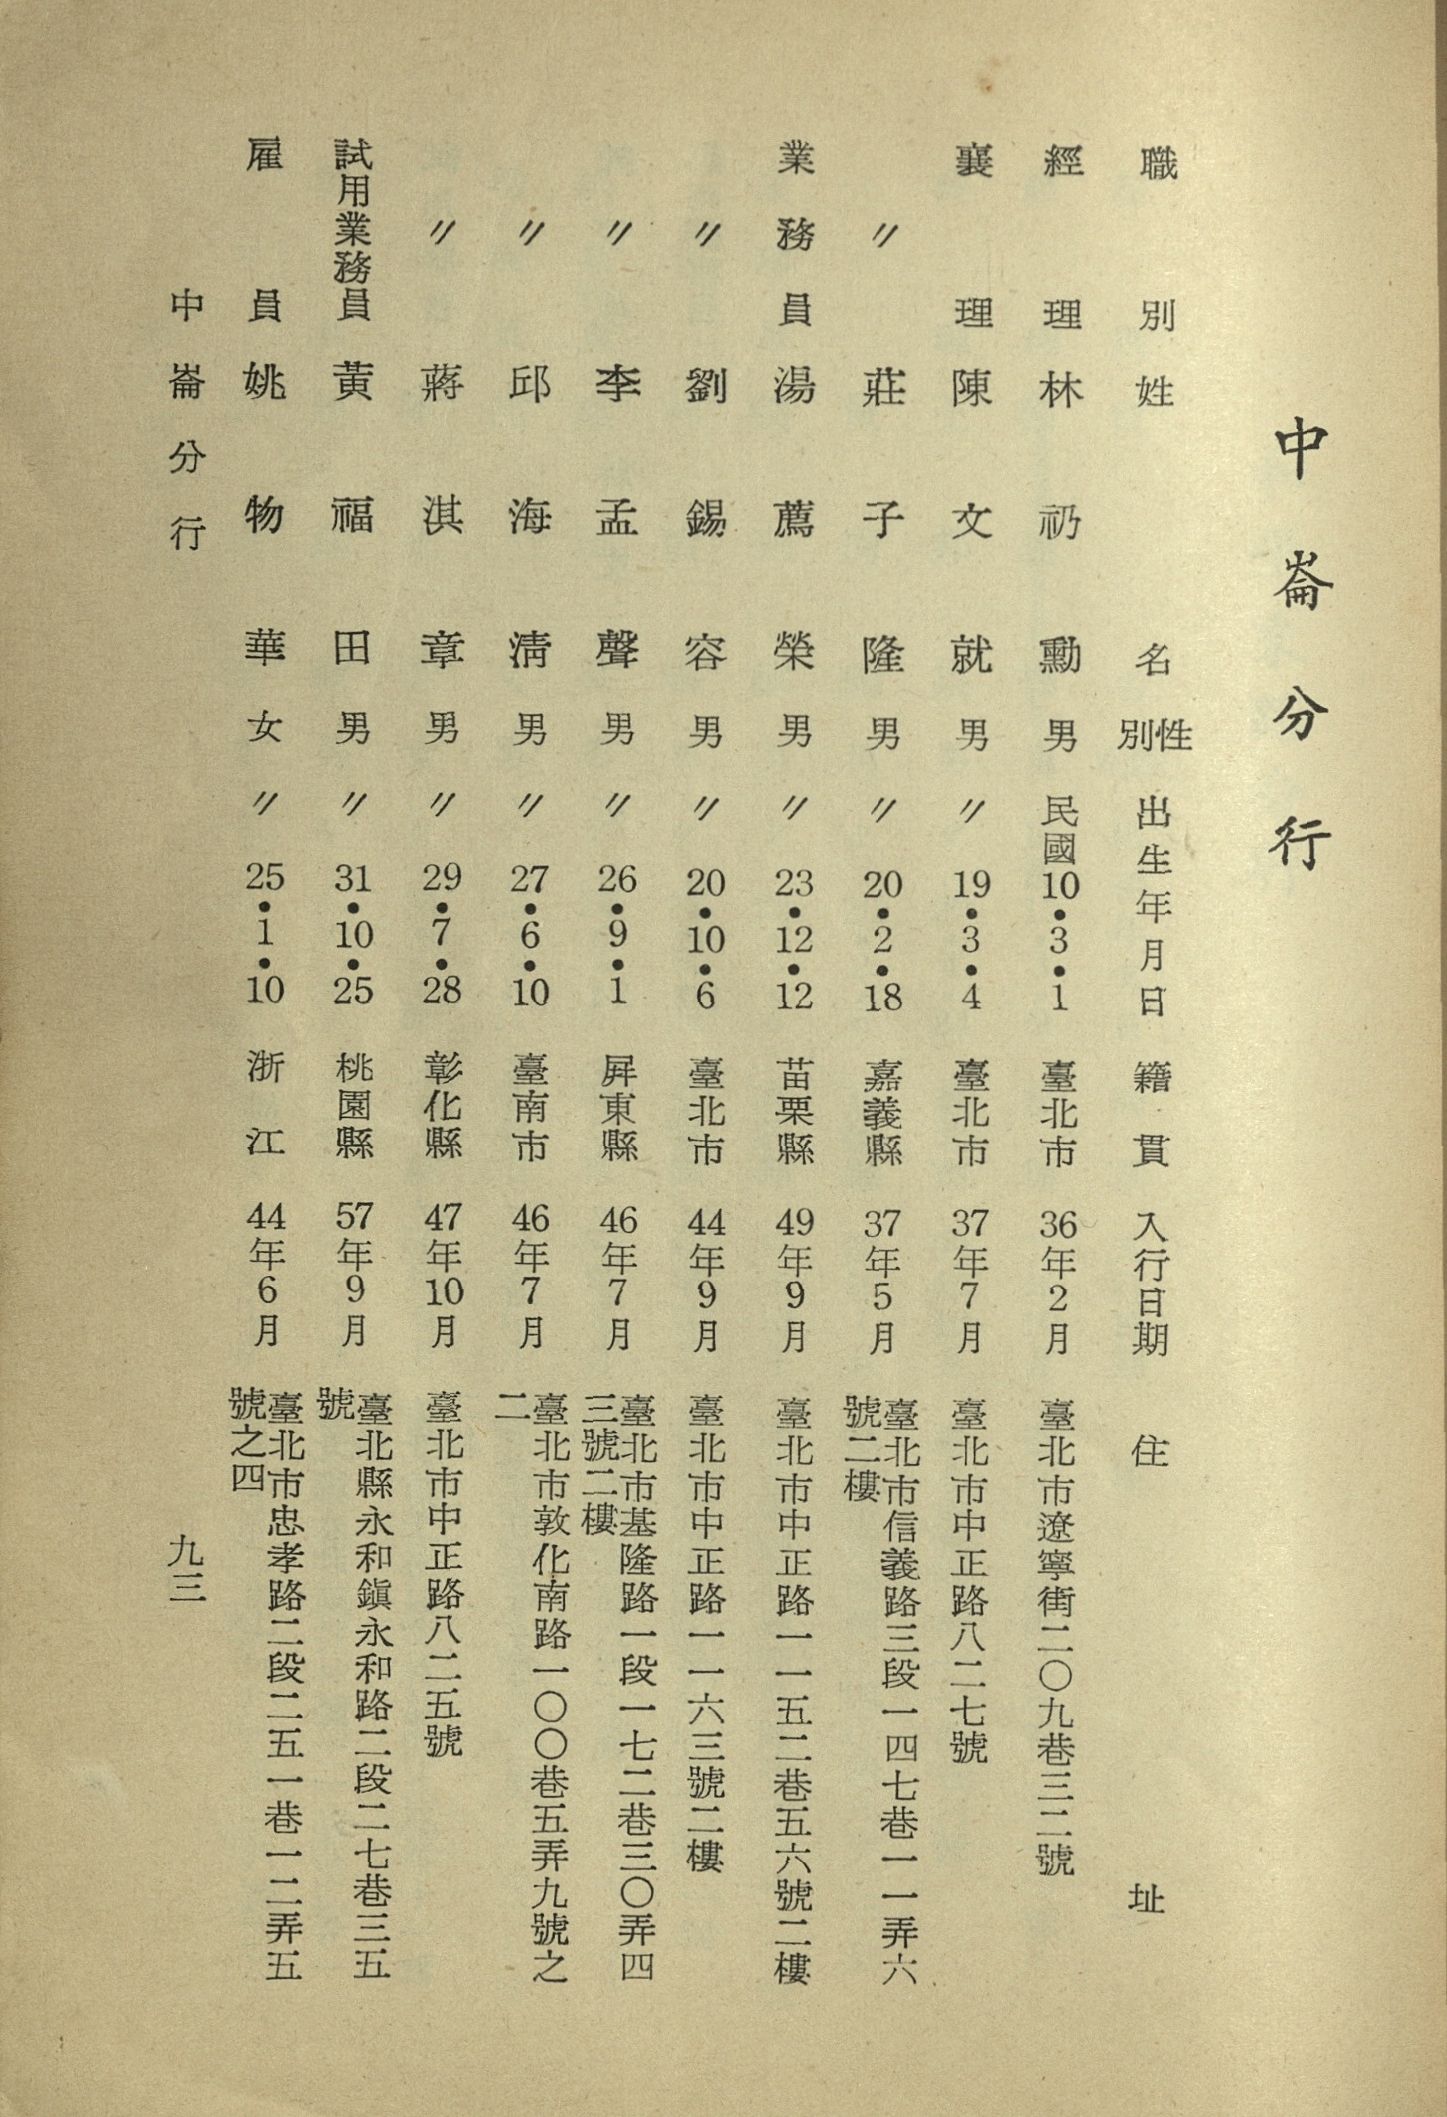 中崙分行
職別 姓名 性別 出生年月日 籍貫 入行日期 住址
經理 林礽勳 男 民國10•3•1 臺北市 36年2月 臺北市遼寧街二〇九巷三二號
襄理 陳文就 男 〃19•3•4 臺北市 37年7月 臺北市中正路八二七號
〃 莊子隆 男 〃20•2•18 嘉義縣 37年5月 臺北市信義路三段一四七巷一一弄六
號二樓
業務員 湯薦榮 男 〃23•12•12 苗栗縣 49年9月 臺北市中正路一一五二巷五六號二樓
〃 劉錫容 男 〃20•10•6 臺北市 44年9月 臺北市中正路一一六三號二樓
〃 李孟聲 男 〃26•9•1 屛東縣 46年7月 臺北市基隆路一段一七二巷三〇弄四
三號二樓
〃 邱海淸 男 〃27•6•10 臺南市 46年7月 臺北市敦化南路一〇〇巷五弄九號之
二
〃 蔣淇章 男 〃29•7•28 彰化縣 47年10月 臺北市中正路八二五號
試用業務員 黃福田 男 〃31•10•25 桃園縣 57年9月 臺北縣永和鎭永和路二段二七巷三五
號
雇員 姚物華 女 〃25•1•10 浙江 44年6月 臺北市忠孝路二段二五一巷一二弄五
號之四
中崙分行 九三